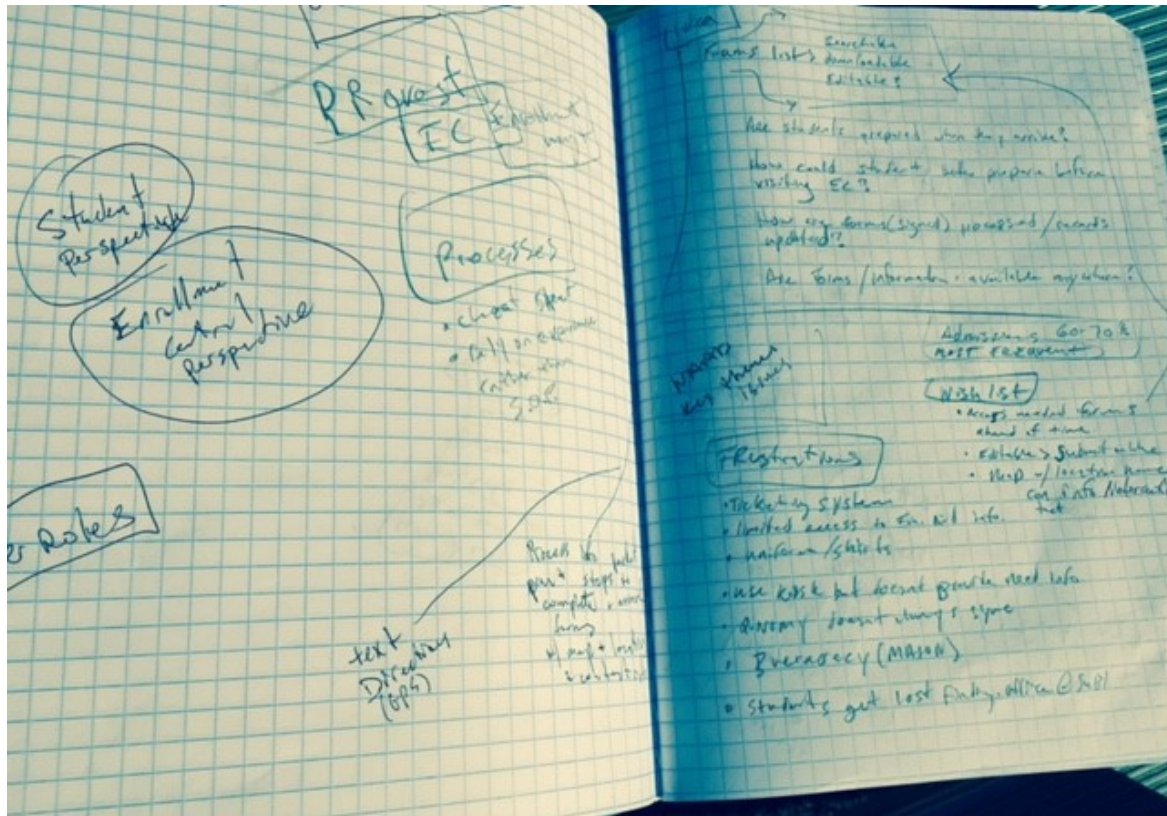 EC
Enrollment
Student
Perspective
Enrollment
Central
Perspective
Processes
• cheat sheet
• Rely on experience
rather than
S.O.P.
Notes
text
Directions
(GPS)
Process
stops to
complete
forms
w/ map +
Forms list >
Searchable
downloadable
Editable?
Are students prepared when they arrive?
How could students better prepare before
visiting EC?
How are forms (signed) processed / records
updated?
Are forms / information available anywhere?
Admissions 60-70%
most frequent
Wish list
• Access needed forms
ahead of time
• Editable > Submit online
• Map w/ location
key themes
issues
FRustrations
• Ticketing System
• limited access to Fin. Aid info.
• uniform/shirts
• use kiosk but doesnt provide need info
• doesnt always sync
(MASON)
• Students get lost finding office @ SUB1